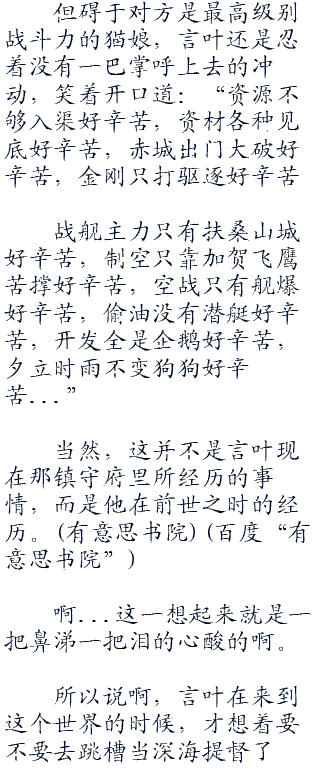 但碍于对方是最高级别
战斗力的猫娘，言叶还是忍
着没有一巴掌呼上去的冲
动，笑着开口道：“资源不
够入渠好辛苦，资材各种见
底好辛苦，赤城出门大破好
辛苦，金刚只打驱逐好辛苦
战舰主力只有扶桑山城
好辛苦，制空只靠加贺飞鹰
苦撑好辛苦，空战只有舰爆
好辛苦，偷油没有潜艇好辛
苦，开发全是企鹅好辛苦，
夕立时雨不变狗狗好辛
苦...”
当然，这并不是言叶现
在那镇守府里所经历的事
情，而是他在前世之时的经
历。(有意思书院)(百度“有
意思书院”)
啊...这一想起来就是一
把鼻涕一把泪的心酸的啊。
所以说啊，言叶在来到
这个世界的时候，才想着要
不要去跳槽当深海提督了